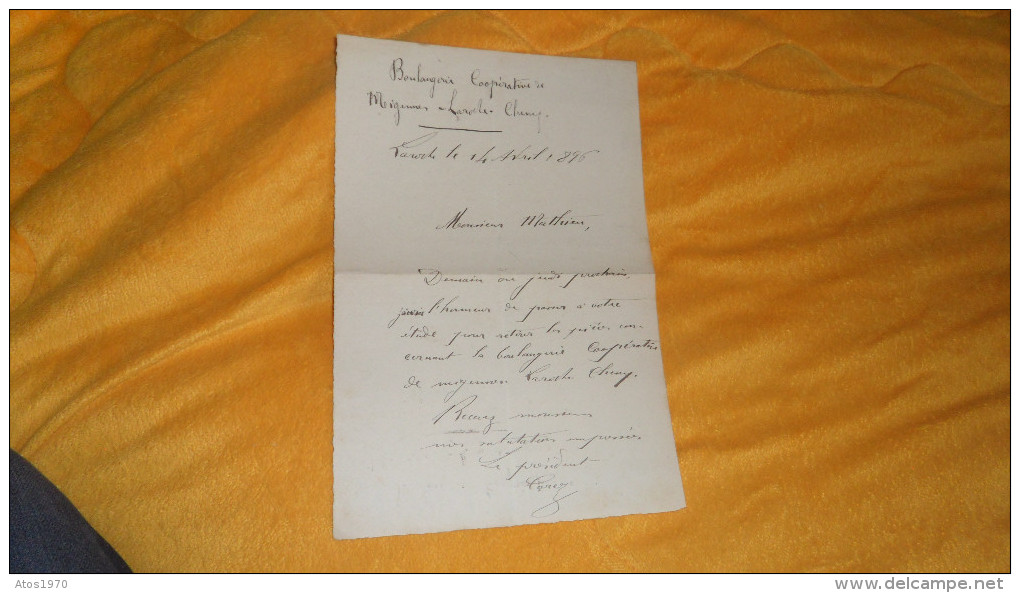 Boulangerie Coopérative de
Migennes - Laroche - Cheny.
Laroche le 14 Avril 1896
Monsieur Mathieu,
Demain ou jeudi prochain,
j'aurai l'honneur de passer à votre
étude pour retirer les pièces con-
cernant la boulangerie Coopérative
de migennes Laroche Cheny.
Recevez monsieur
mes salutations empressées
Le président
Atos1970
www.delcampe.net